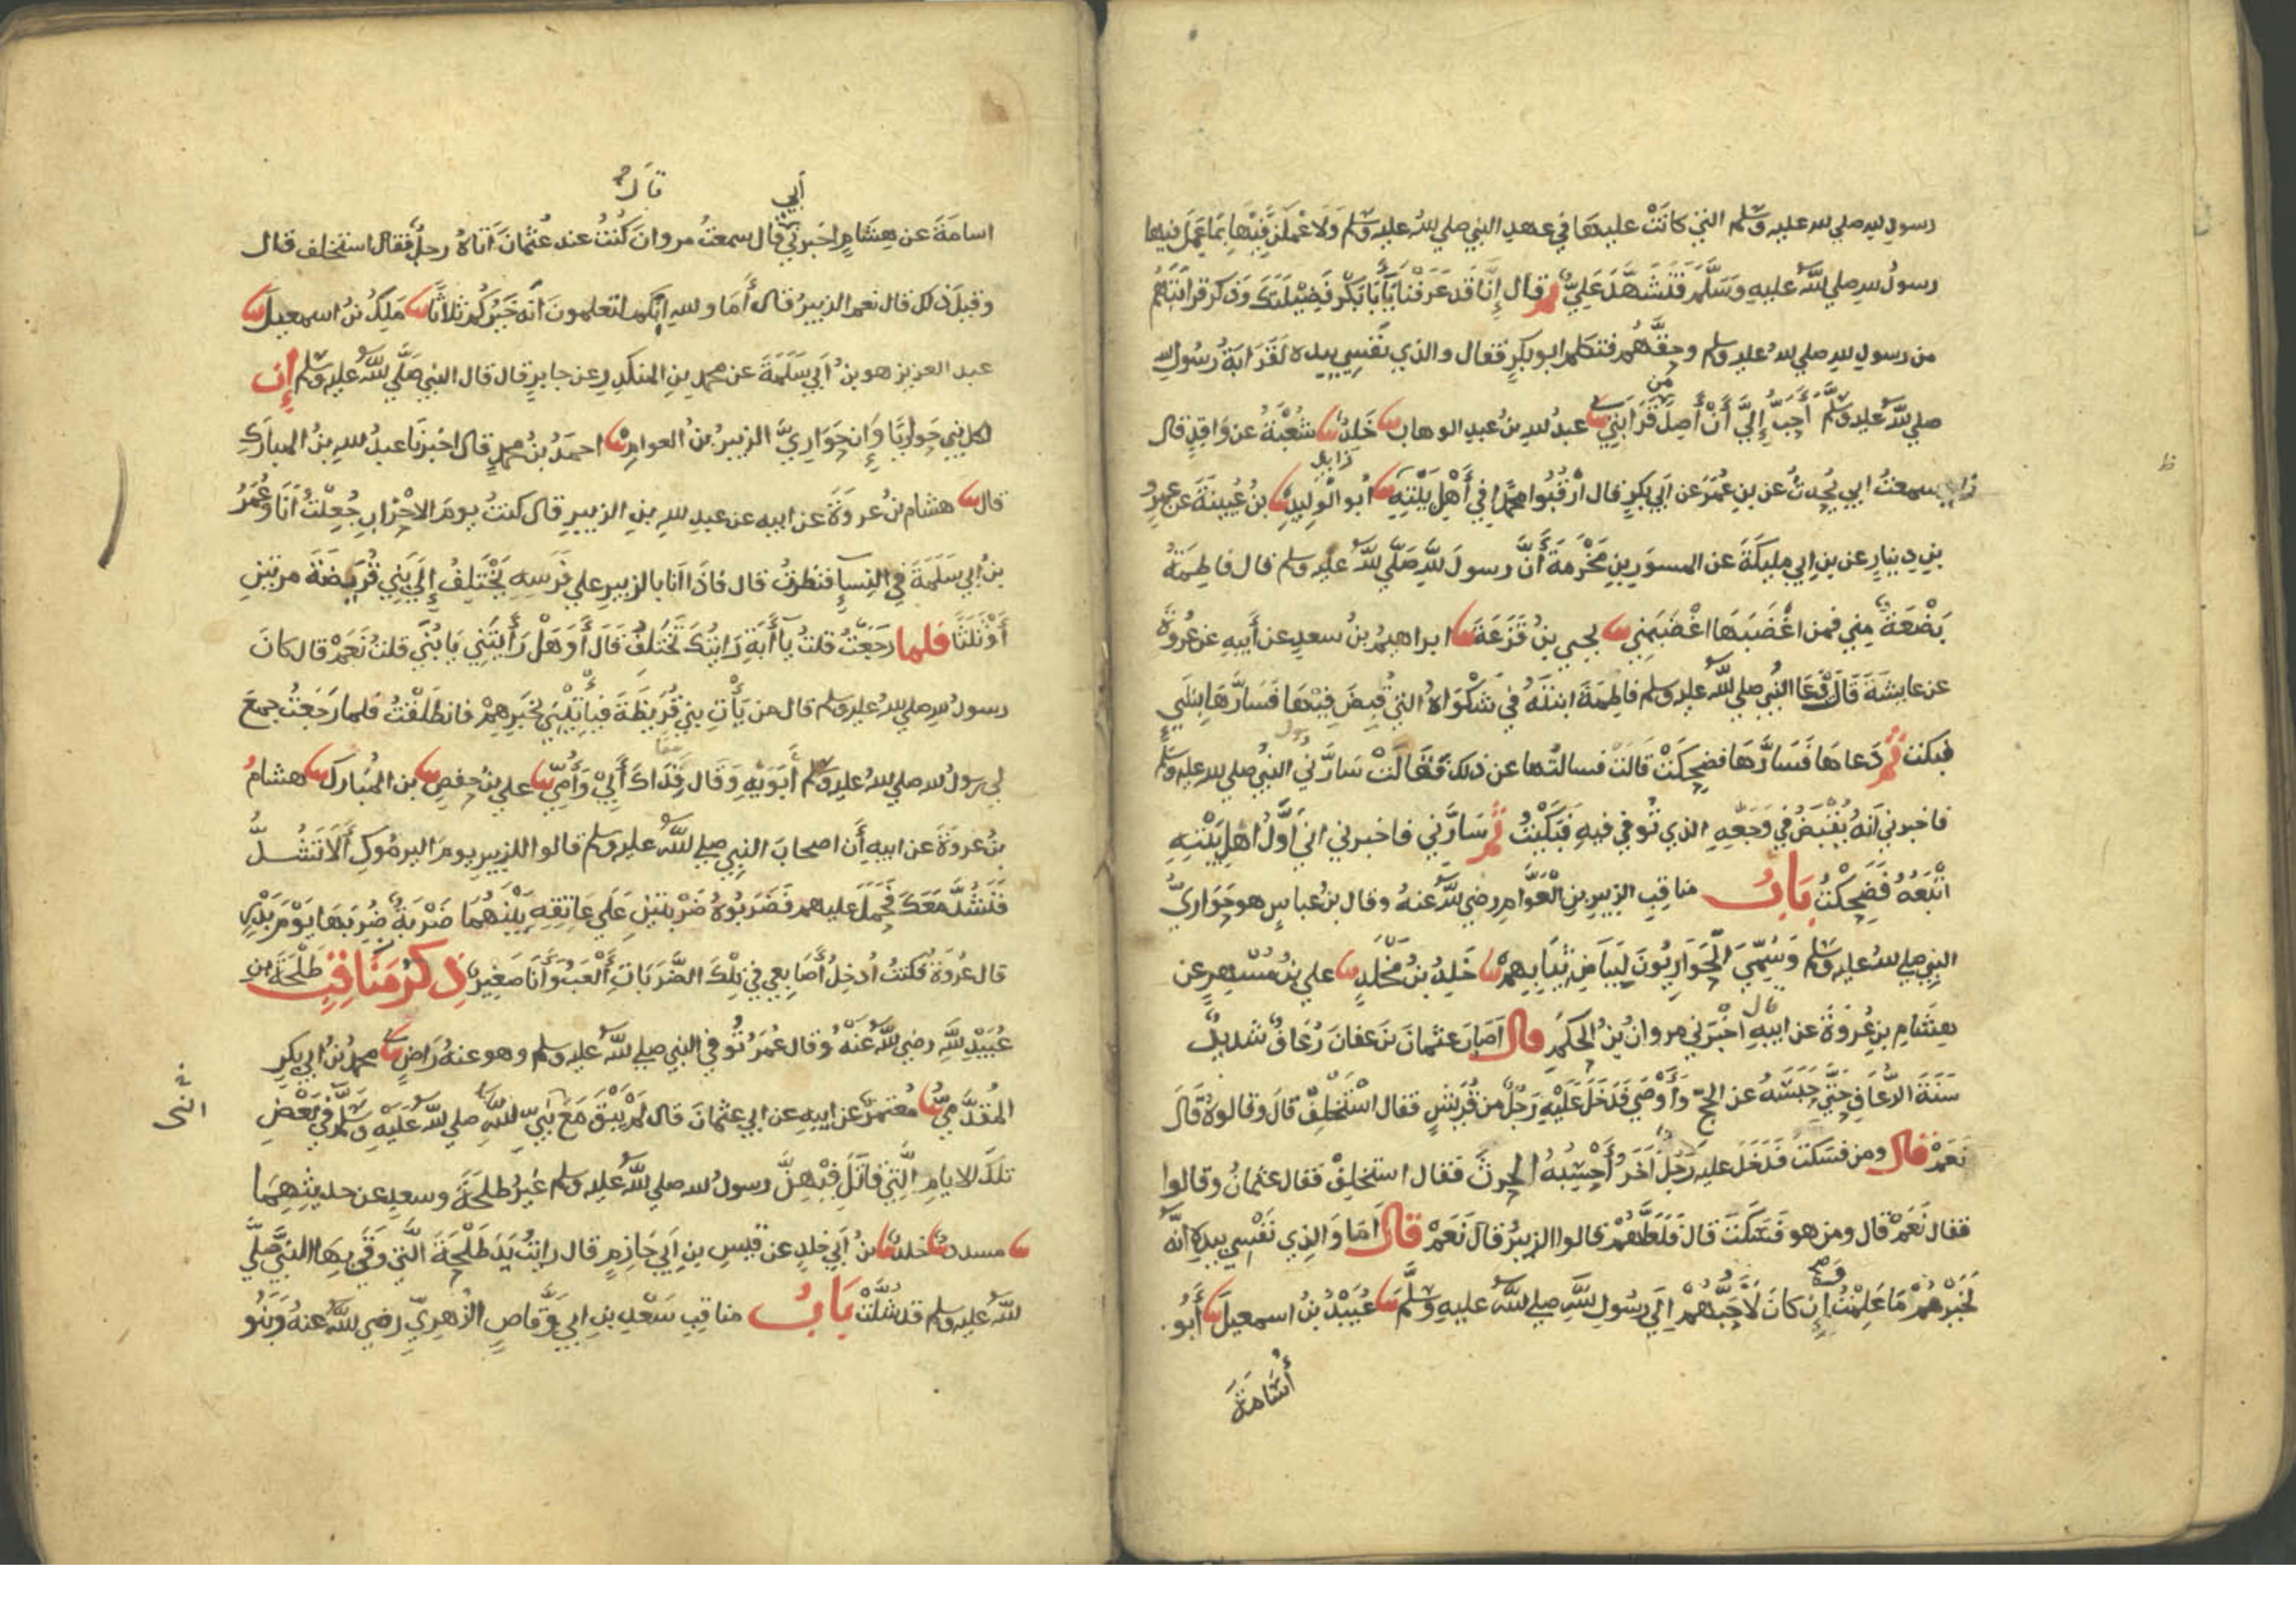 رسول الله صلى الله عليه وسلم التي كانت عليها في عهد النبي صلى الله عليه وسلم ولاعملن فيها بما عمل فيها
رسول الله صلى الله عليه وسلم فتشهد علي ثم قال إنا قد عرفنا يا أبا بكر فضيلتك وذكر قرابتهم
من رسول الله صلى الله عليه وسلم وحقهم فتكلم ابو بكر فقال والذي نفسي بيده لقرابة رسول الله
صلى الله عليه وسلم أحب إلي أن أصل من قرابتي ثنا عبد الله بن عبد الوهاب ثنا خلد ثنا شعبة عن واقد قال
سمعت ابي يحدث عن بن عمر عن ابي بكر قال ارقبوا محمدا في أهل بيته ثنا أبو الوليد ثنا بن عيينة عن عمرو
بن دينار عن بن ابي مليكة عن المسور بن مخرمة أن رسول الله صلى الله عليه وسلم قال فاطمة
بضعة مني فمن اغضبها اغضبني ثنا يحيى بن قزعة ثنا ابراهيم بن سعد عن أبيه عن عروة
عن عايشة قالت دعا النبي صلى الله عليه وسلم فاطمة ابنته في شكواه التي قبض فيها فسارها بشي
فبكت ثم دعاها فسارها فضحكت قالت فسالتها عن ذلك فقالت سارني النبي صلى الله عليه وسلم
فاخبرني انه يقبض في وجعه الذي توفي فيه فبكيت ثم سارني فاخبرني اني أول اهل بيته
اتبعه فضحكت باب مناقب الزبير بن العوام رضي الله عنه وقال بن عباس هو حواري
النبي صلى الله عليه وسلم وسمي الحواريون لبياض ثيابهم ثنا خلد بن مخلد ثنا علي بن مسهر عن
هشام بن عروة عن ابيه قال اخبرني مروان بن الحكم قال أصاب عثمان بن عفان رعاف شديد
سنة الرعاف حتى حبسه عن الحج وأوصى فدخل عليه رجل من قريش فقال استخلف قال وقالوه قال
نعم قال ومن فسكت فدخل عليه رجل آخر أحسبه الحرث فقال استخلف فقال عثمان وقالوا
فقال نعم قال ومن هو فسكت قال فلعلهم قالوا الزبير قال نعم قال أما والذي نفسي بيده انه
لخيرهم ما علمت وإن كان لأحبهم الى رسول الله صلى الله عليه وسلم ثنا عبيد بن اسمعيل ثنا أبو
أسامة
أبي قال
اسامة عن هشام اخبرني قال سمعت مروان كنت عند عثمان أتاه رجل فقال استخلف قال
وقيل ذلك قال نعم الزبير قال أما والله إنكم لتعلمون انه خيركم ثلاثا ثنا ملك بن اسمعيل ثنا
عبد العزيز هو بن أبي سلمة عن محمد بن المنكدر عن جابر قال قال النبي صلى الله عليه وسلم إن
لكل نبي حواريا وإن حواري الزبير بن العوام ثنا احمد بن محمد قال اخبرنا عبد الله بن المبارك
قال ثنا هشام بن عروة عن ابيه عن عبد الله بن الزبير قال كنت يوم الاحزاب جعلت أنا وعمر
بن ابي سلمة في النسا فنظرت قال فاذا انا بالزبير على فرسه يختلف إلى بني قريضة مرتين
أو ثلثا فلما رجعت قلت يا أبة رايتك تختلف قال أو هل رأيتني يا بني قلت نعم قال كان
رسول الله صلى الله عليه وسلم قال من يأت بني قريظة فياتيني بخبرهم فانطلقت فلما رجعت جمع
لي رسول الله صلى الله عليه وسلم أبويه وقال فداك أبي وأمي ثنا علي بن حفص ثنا بن المبارك ثنا هشام
بن عروة عن ابيه أن اصحاب النبي صلى الله عليه وسلم قالوا للزبير يوم اليرموك ألا تشد
فنشد معك فحمل عليهم فضربوه ضربتين على عاتقه بينهما ضربة ضربها يوم بدر
قال عروة فكنت أدخل أصابعي في تلك الضربات ألعب وأنا صغير ذكر مناقب طلحة بن
عبيد الله رضي الله عنه وقال عمر توفي النبي صلى الله عليه وسلم وهو عنه راض ثنا محمد بن ابي بكر
المقدمي ثنا معتمر عن ابيه عن ابي عثمان قال لم يبق مع نبي الله صلى الله عليه وسلم في بعض
تلك الايام التي قاتل فيهن رسول الله صلى الله عليه وسلم غير طلحة وسعد عن حديثهما
ثنا مسدد ثنا خلد ثنا بن أبي خلد عن قيس بن ابي حازم قال رايت يد طلحة التي وقى بها النبي صلى
الله عليه وسلم قد شلت باب مناقب سعد بن ابي وقاص الزهري رضي الله عنه وبنو